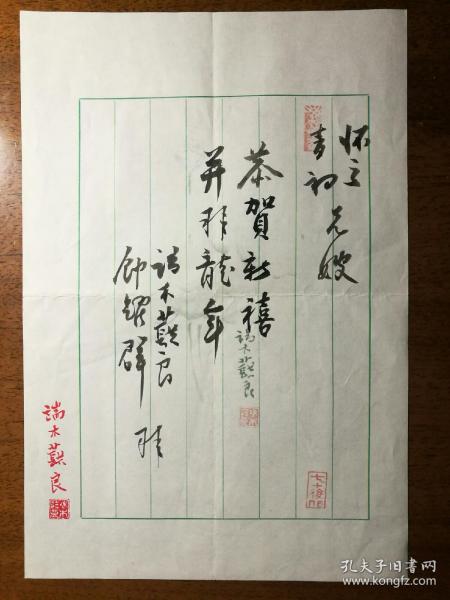 怀
青初 兄嫂
恭賀新禧
并拜龍年
端木蕻良
钟耀群 拜
端木蕻良
端木蕻良
七十後作
孔夫子旧书网
www.kongfz.com